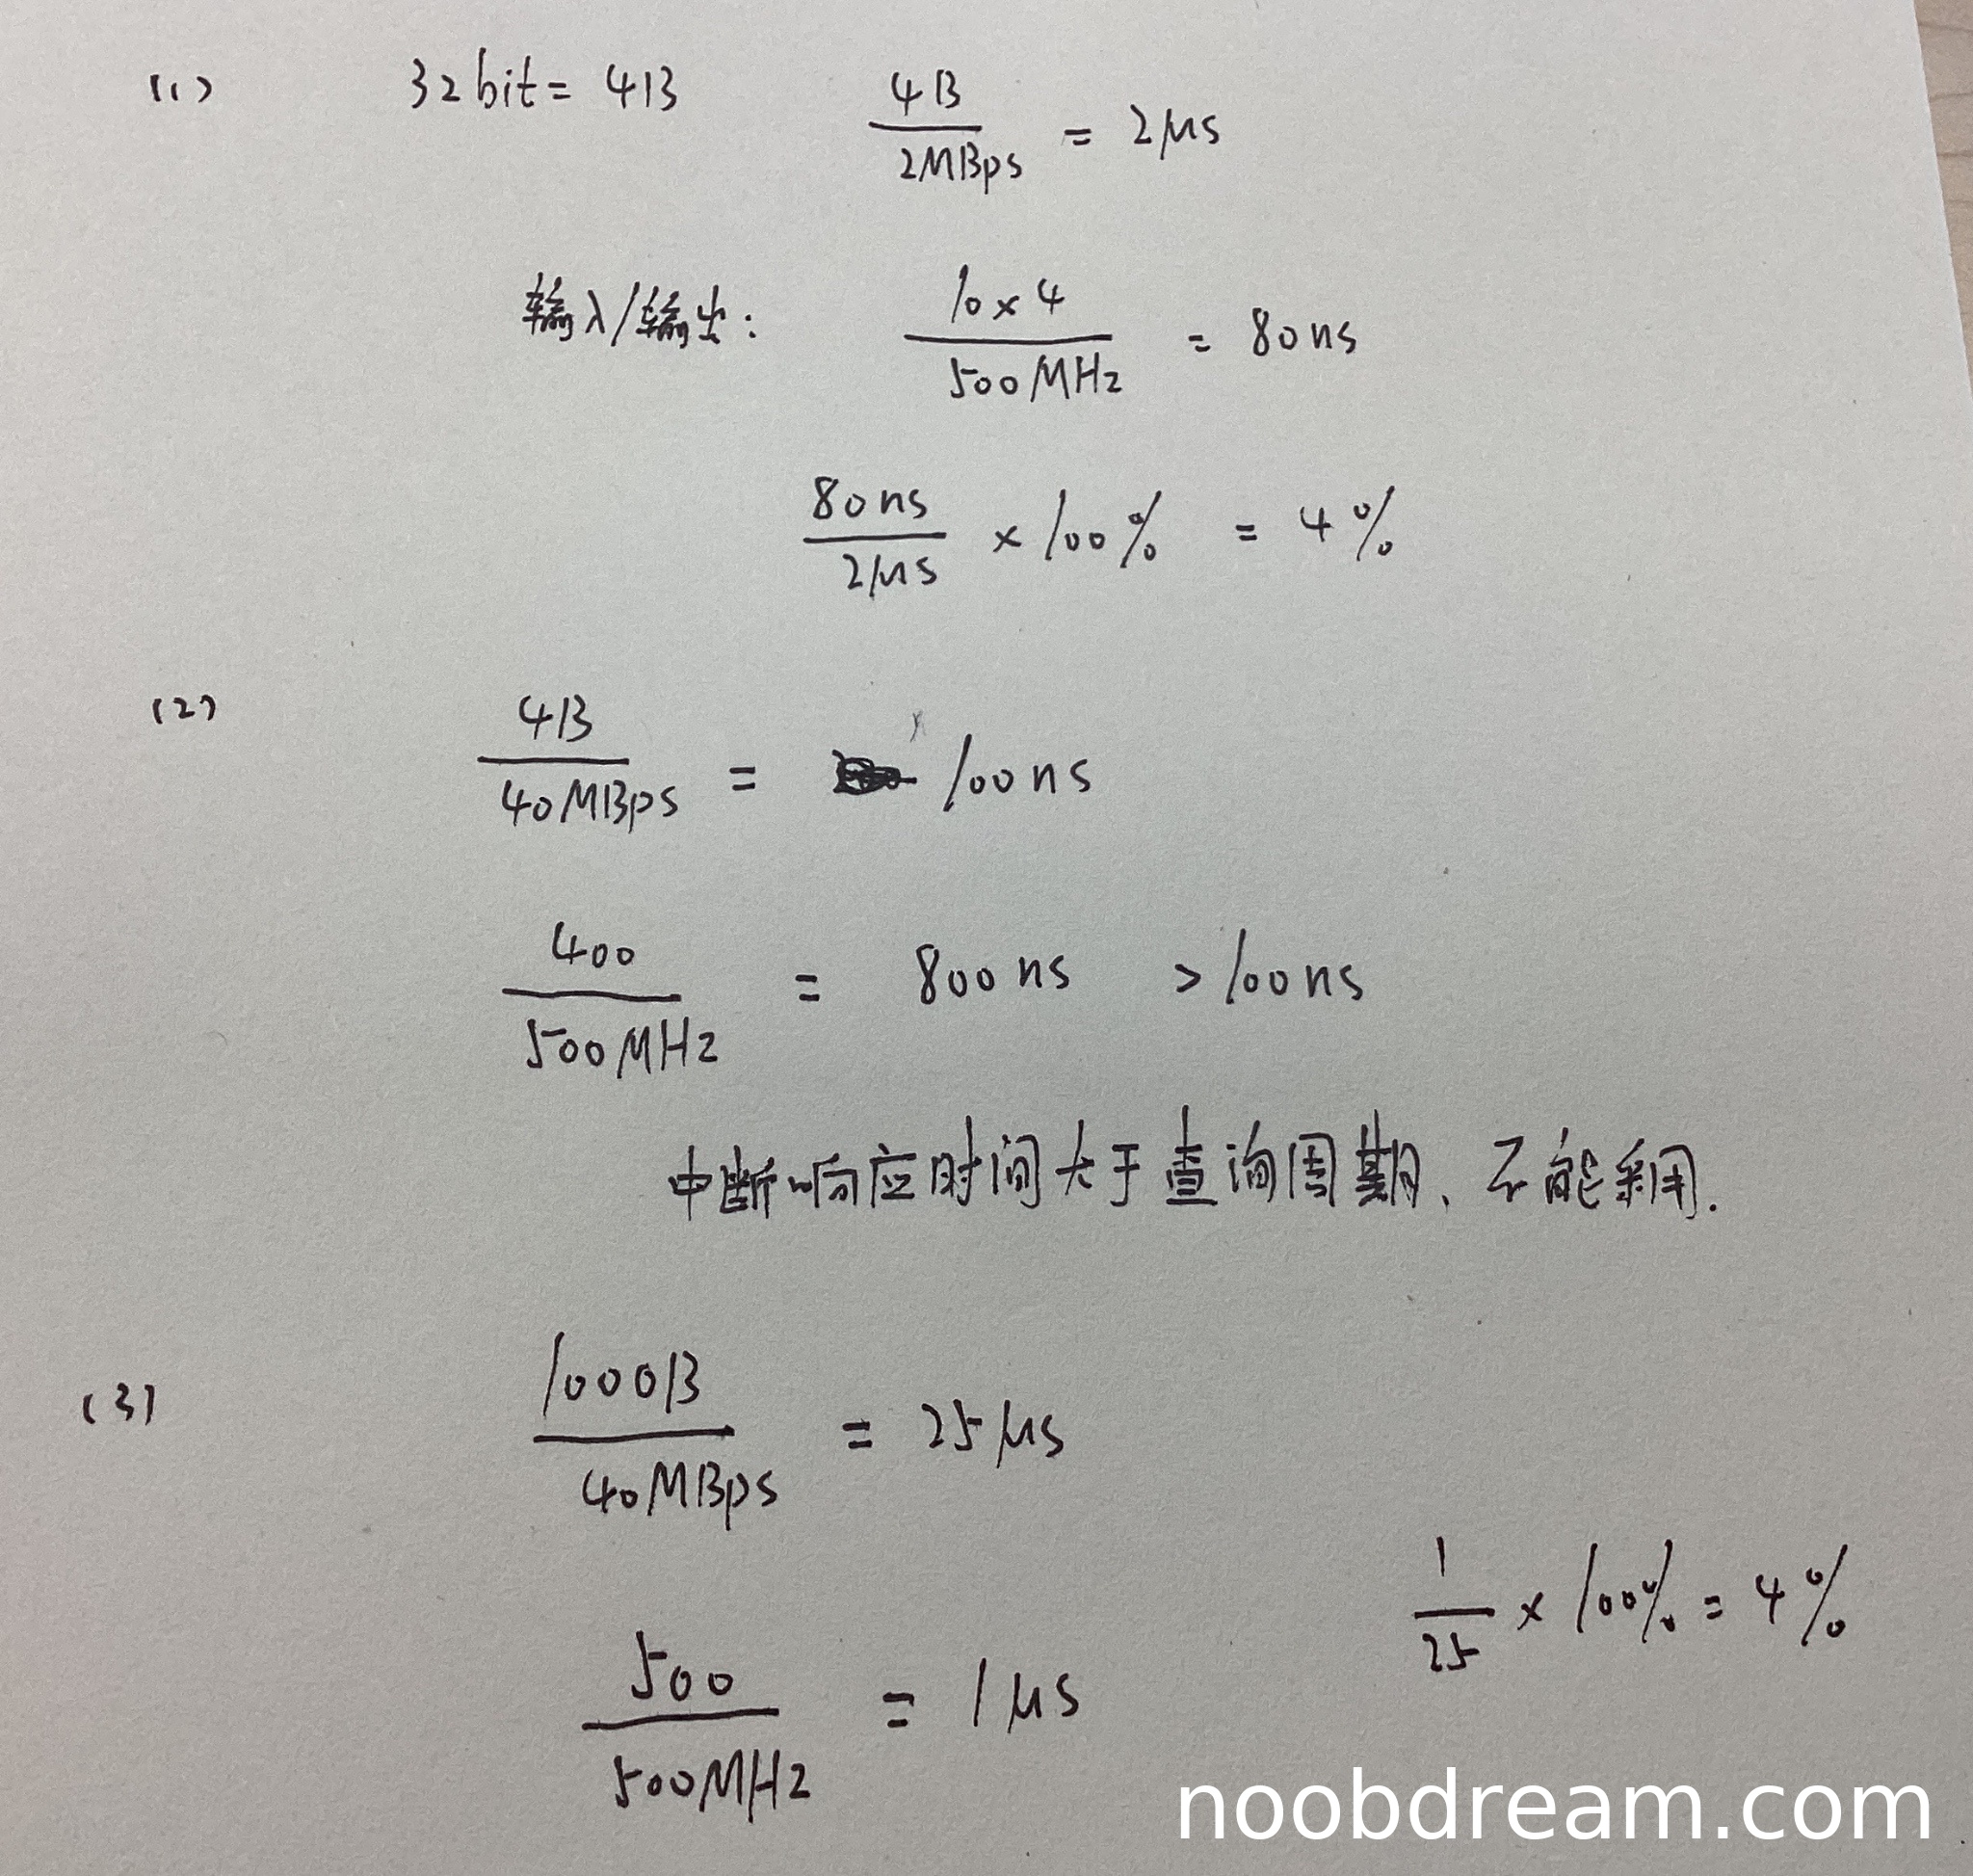 (1) 32bit = 4B 4B/2MBps = 2μs
输入/输出: 10×4/500MHz = 80ns
80ns/2μs × 100% = 4%
(2) 4B/40MBps = 100ns
400/500MHz = 800ns > 100ns
中断响应时间大于查询周期、不能采用.
(3) 1000B/40MBps = 25μs
500/500MHz = 1μs 1/25 × 100% = 4%
noobdream.com